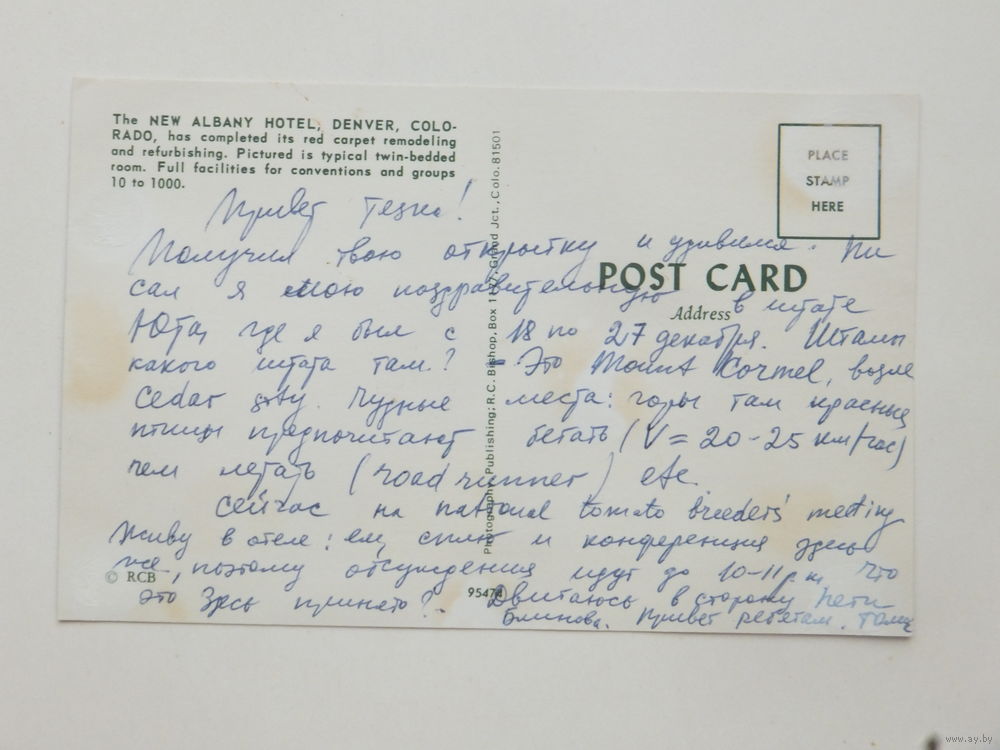 The NEW ALBANY HOTEL, DENVER, COLO-
RADO, has completed its red carpet remodeling
and refurbishing. Pictured is typical twin-bedded
room. Full facilities for conventions and groups
10 to 1000.
PLACE
STAMP
HERE
POST CARD
Address
Photography, Publishing; R.C. Bishop, Box Grand Jct., Colo. 81501
Привет Тезка!
Получил твою открытку и удивился. Пи
сал я мою поздравительную в штате
Юта, где я был с 18 по 27 декабря. Штамп
какого штата там? - Это Mount Cormel, возле
Cedar sity. Чудные места: горы там красные
птицы предпочитают бегать (V = 20-25 км/час)
чем летать (road runner) etc.
Сейчас на national tomato breeders' meeting
Живу в отеле: ем, сплю и конференция здесь
же, поэтому обсуждения идут до 10-11 Что
это здесь принято? Двигаюсь в сторону Пети
Блинова. Привет ребятам.
© RCB
95474
www.ay.by